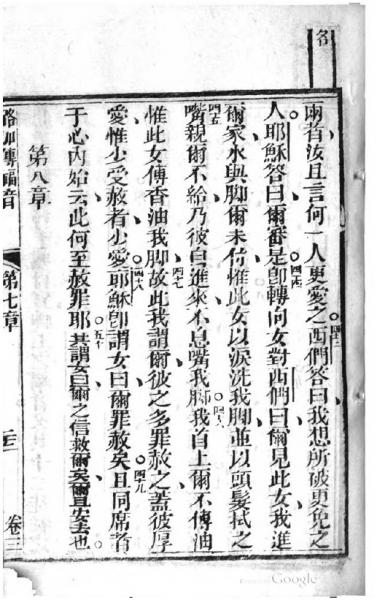 各
兩者汝且言何一人更愛之西們答曰我想所破更免之
四三
人耶穌答曰爾審是卽轉向女對西們曰爾見此女我進
四四
爾家水與脚爾未侍惟此女以淚洗我脚並以頭髮拭之
四五
嘴親爾不給乃彼自進來不息嘴我脚我首上爾不傅油
四六
惟此女傅香油我脚故此我謂爾彼之多罪赦之蓋彼厚
四七
愛惟少受赦者少愛耶穌卽謂女曰爾罪赦矣且同席者
四八
四九
于心內始云此何至赦罪耶其謂女曰爾之信救爾矣爾且安去也
五十
第八章
路加傳福音
第七章
卷三
Google